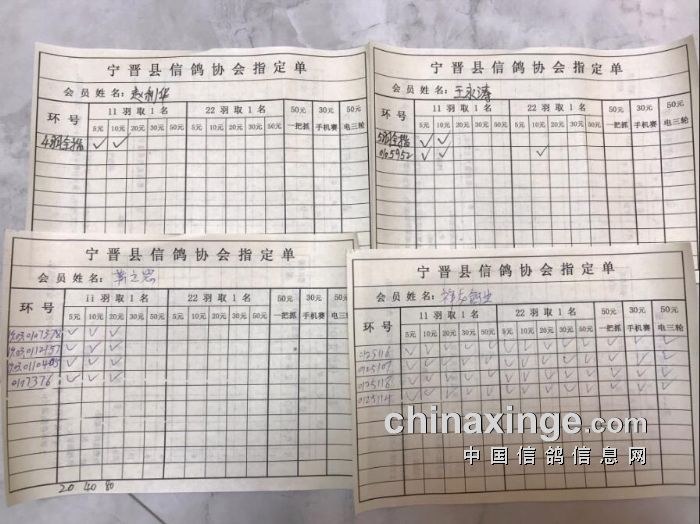 宁晋县信鸽协会指定单
会员姓名: 赵利华
环号 11羽取1名 22羽取1名 50元 30元 50元
5元 10元 20元 30元 50元 5元 10元 20元 30元 50元 一把抓 手机赛 电三轮
4羽全指 ✓ ✓
宁晋县信鸽协会指定单
会员姓名: 王永涛
环号 11羽取1名 22羽取1名 50元 30元 50元
5元 10元 20元 30元 50元 5元 10元 20元 30元 50元 一把抓 手机赛 电三轮
5羽全指 ✓ ✓
0105952 ✓ ✓ ✓
宁晋县信鸽协会指定单
会员姓名:
环号 11羽取1名 22羽取1名 50元 30元 50元
5元 10元 20元 30元 50元 5元 10元 20元 30元 50元 一把抓 手机赛 电三轮
✓ ✓ ✓
✓ ✓ ✓
✓ ✓ ✓
0107376 ✓ ✓ ✓
20 40 80
宁晋县信鸽协会指定单
会员姓名:
环号 11羽取1名 22羽取1名 50元 30元 50元
5元 10元 20元 30元 50元 5元 10元 20元 30元 50元 一把抓 手机赛 电三轮
0125116 ✓ ✓ ✓ ✓ ✓ ✓ ✓ ✓ ✓ ✓ ✓ ✓ ✓
0125107 ✓ ✓ ✓ ✓ ✓ ✓ ✓ ✓ ✓ ✓ ✓ ✓ ✓
0125118 ✓ ✓ ✓ ✓ ✓ ✓ ✓ ✓ ✓ ✓ ✓ ✓ ✓
0125114
chinaxinge.com
中国信鸽信息网